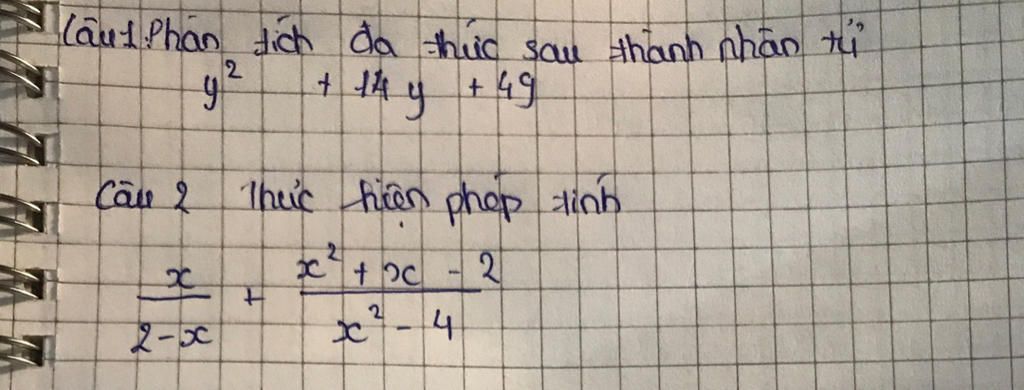 Câu 1. Phân tích đa thức sau thành nhân tử
y² + 14y + 49
Câu 2 Thực hiện phép tính
x/(2-x) + (x² + x - 2)/(x² - 4)